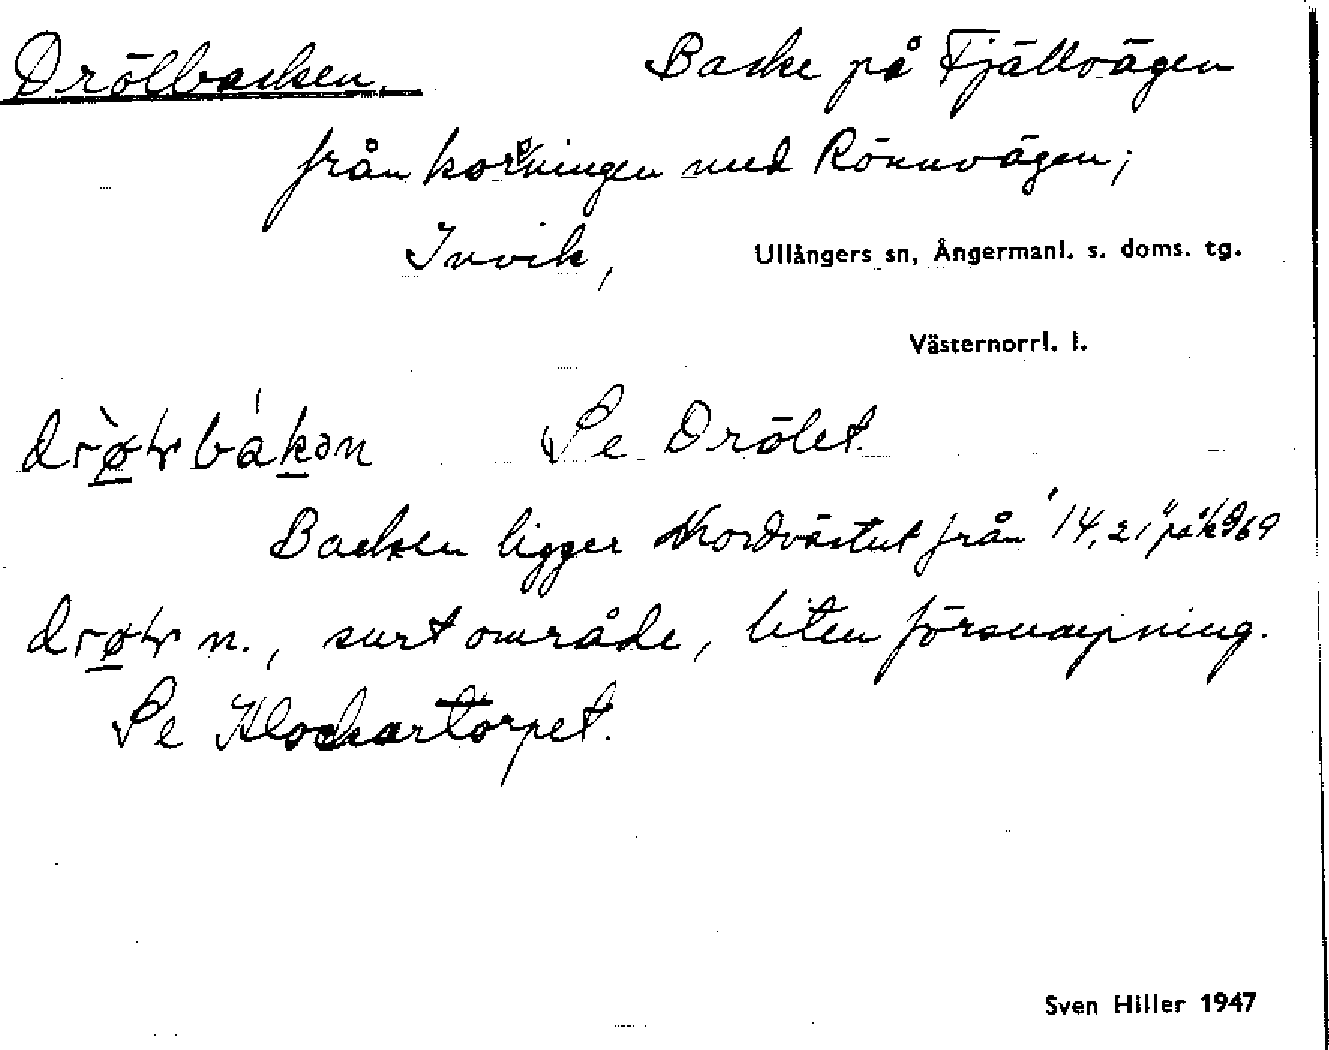 Drölbacken. Backe på Fjällvägen
från korsningen med Rönnvägen;
Invik, Ullångers sn, Ångermanl. s. doms. tg.
Västernorrl. l.
Se Drölet.
Backen ligger Nordväst ut från 14,21 på
n., surt område, liten försumpning.
Se Klockartorpet.
Sven Hiller 1947